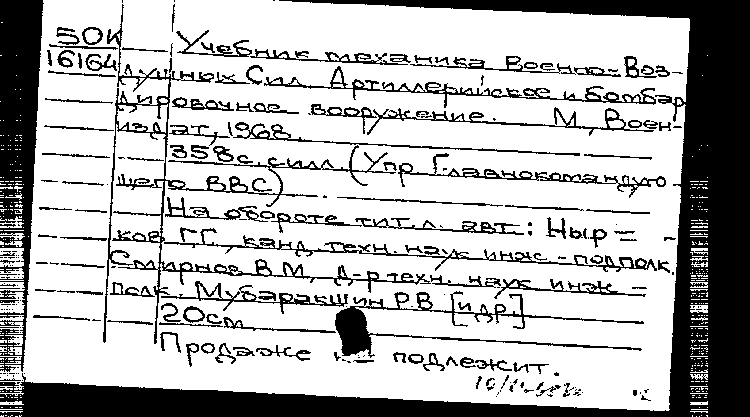 50К
16164
Учебник механика Военно-Воз-
душных Сил. Артиллерийское и бомбар
дировочное вооружение. М, Воен-
издат, 1968.
358с. с илл. (Упр Главнокомандую-
щего ВВС)
На обороте тит. л. авт.: Ныр=
ков Г.Г., канд. техн. наук инж-подполк.
Смирнов В.М, д-р техн. наук инж-
полк. Мубаракшин Р.В [и др.]
20см.
Продаже подлежит.